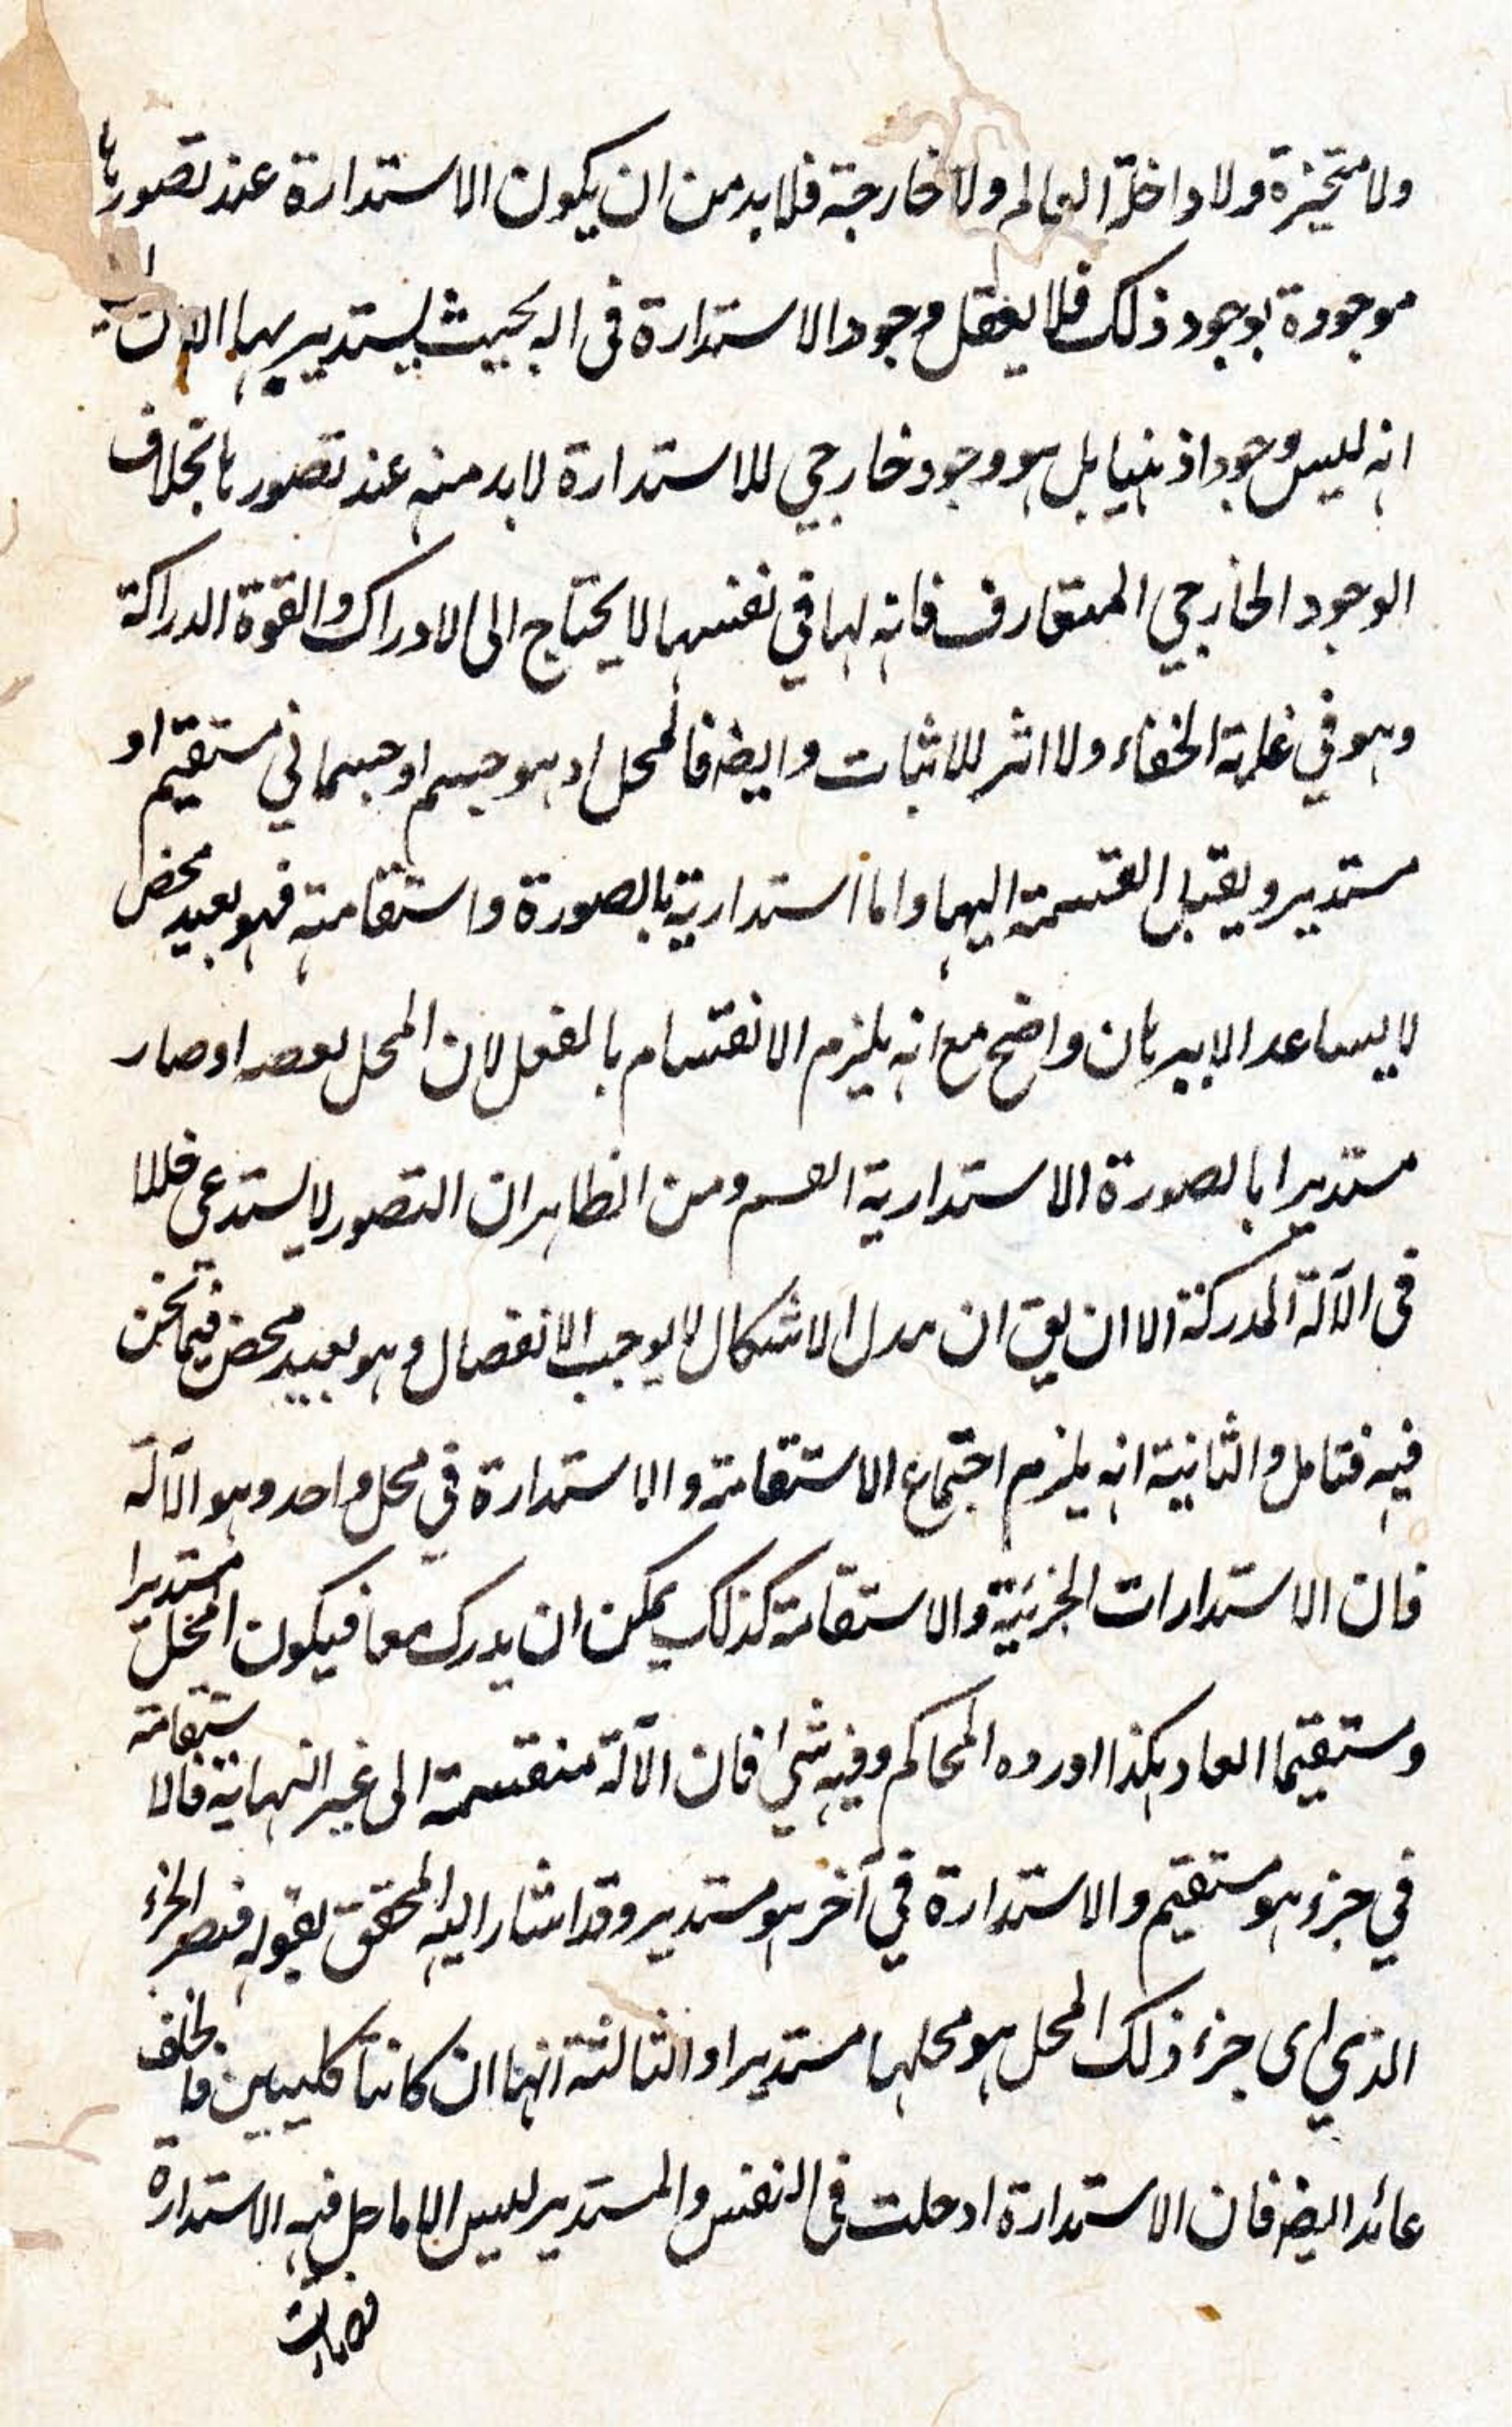 ولا متحيزة ولا داخلة العالم ولا خارجة فلا بد من ان يكون الاستدارة عند تصورها
موجودة بوجود ذلك فلا يعقل وجود الاستدارة فى اله بحيث يستدير بها الا ان
انه ليس وجودا ذهنيا بل هو وجود خارجي للاستدارة لا بد منه عند تصورها بخلاف
الوجود الخارجي المتعارف فانه لها في نفسها لا يحتاج الى الادراك والقوة الدراكة
وهو في غاية الخفاء ولا اثر للاثبات وايضه فالمحل اذ هو جسم او جسماني مستقيم او
مستدير ويقبل القسمة اليهما واما استداريته بالصورة واستقامته فهو بعيد محض
لا يساعد الا برهان واضح مع انه يلزم الانقسام بالفعل لان المحل بعضه اذ صار
مستديرا بالصورة الاستدارية القسم ومن الظاهر ان التصور لا يستدعى خللا
فى الآلة المدركة الا ان يق ان الاشكال لا يوجب الانفصال وهو بعيد محض فيما نحن
فيه فتامل والثانية انه يلزم اجتماع الاستقامة والاستدارة في محل واحد وهو الآلة
فان الاستدارات الجزئية والاستقامة كذلك يمكن ان يدرك معا فيكون المحل مستديرا
ومستقيما معا هكذا اورده المحاكم وفيه شئ فان الآلة منقسمة الى غير النهاية فالاستقامة
في جزء هو مستقيم والاستدارة في آخر هو مستدير وقد اشار اليه المحقق بقوله فيصير الجزء
الذي اى جزء ذلك المحل هو محلها مستديرا والثالثة انهما ان كانتا كليتين فالخلف
عائد ايضه فان الاستدارة اذ حلت فى النفس والمستدير ليس الا ما حل فيه الاستدارة
فصارت